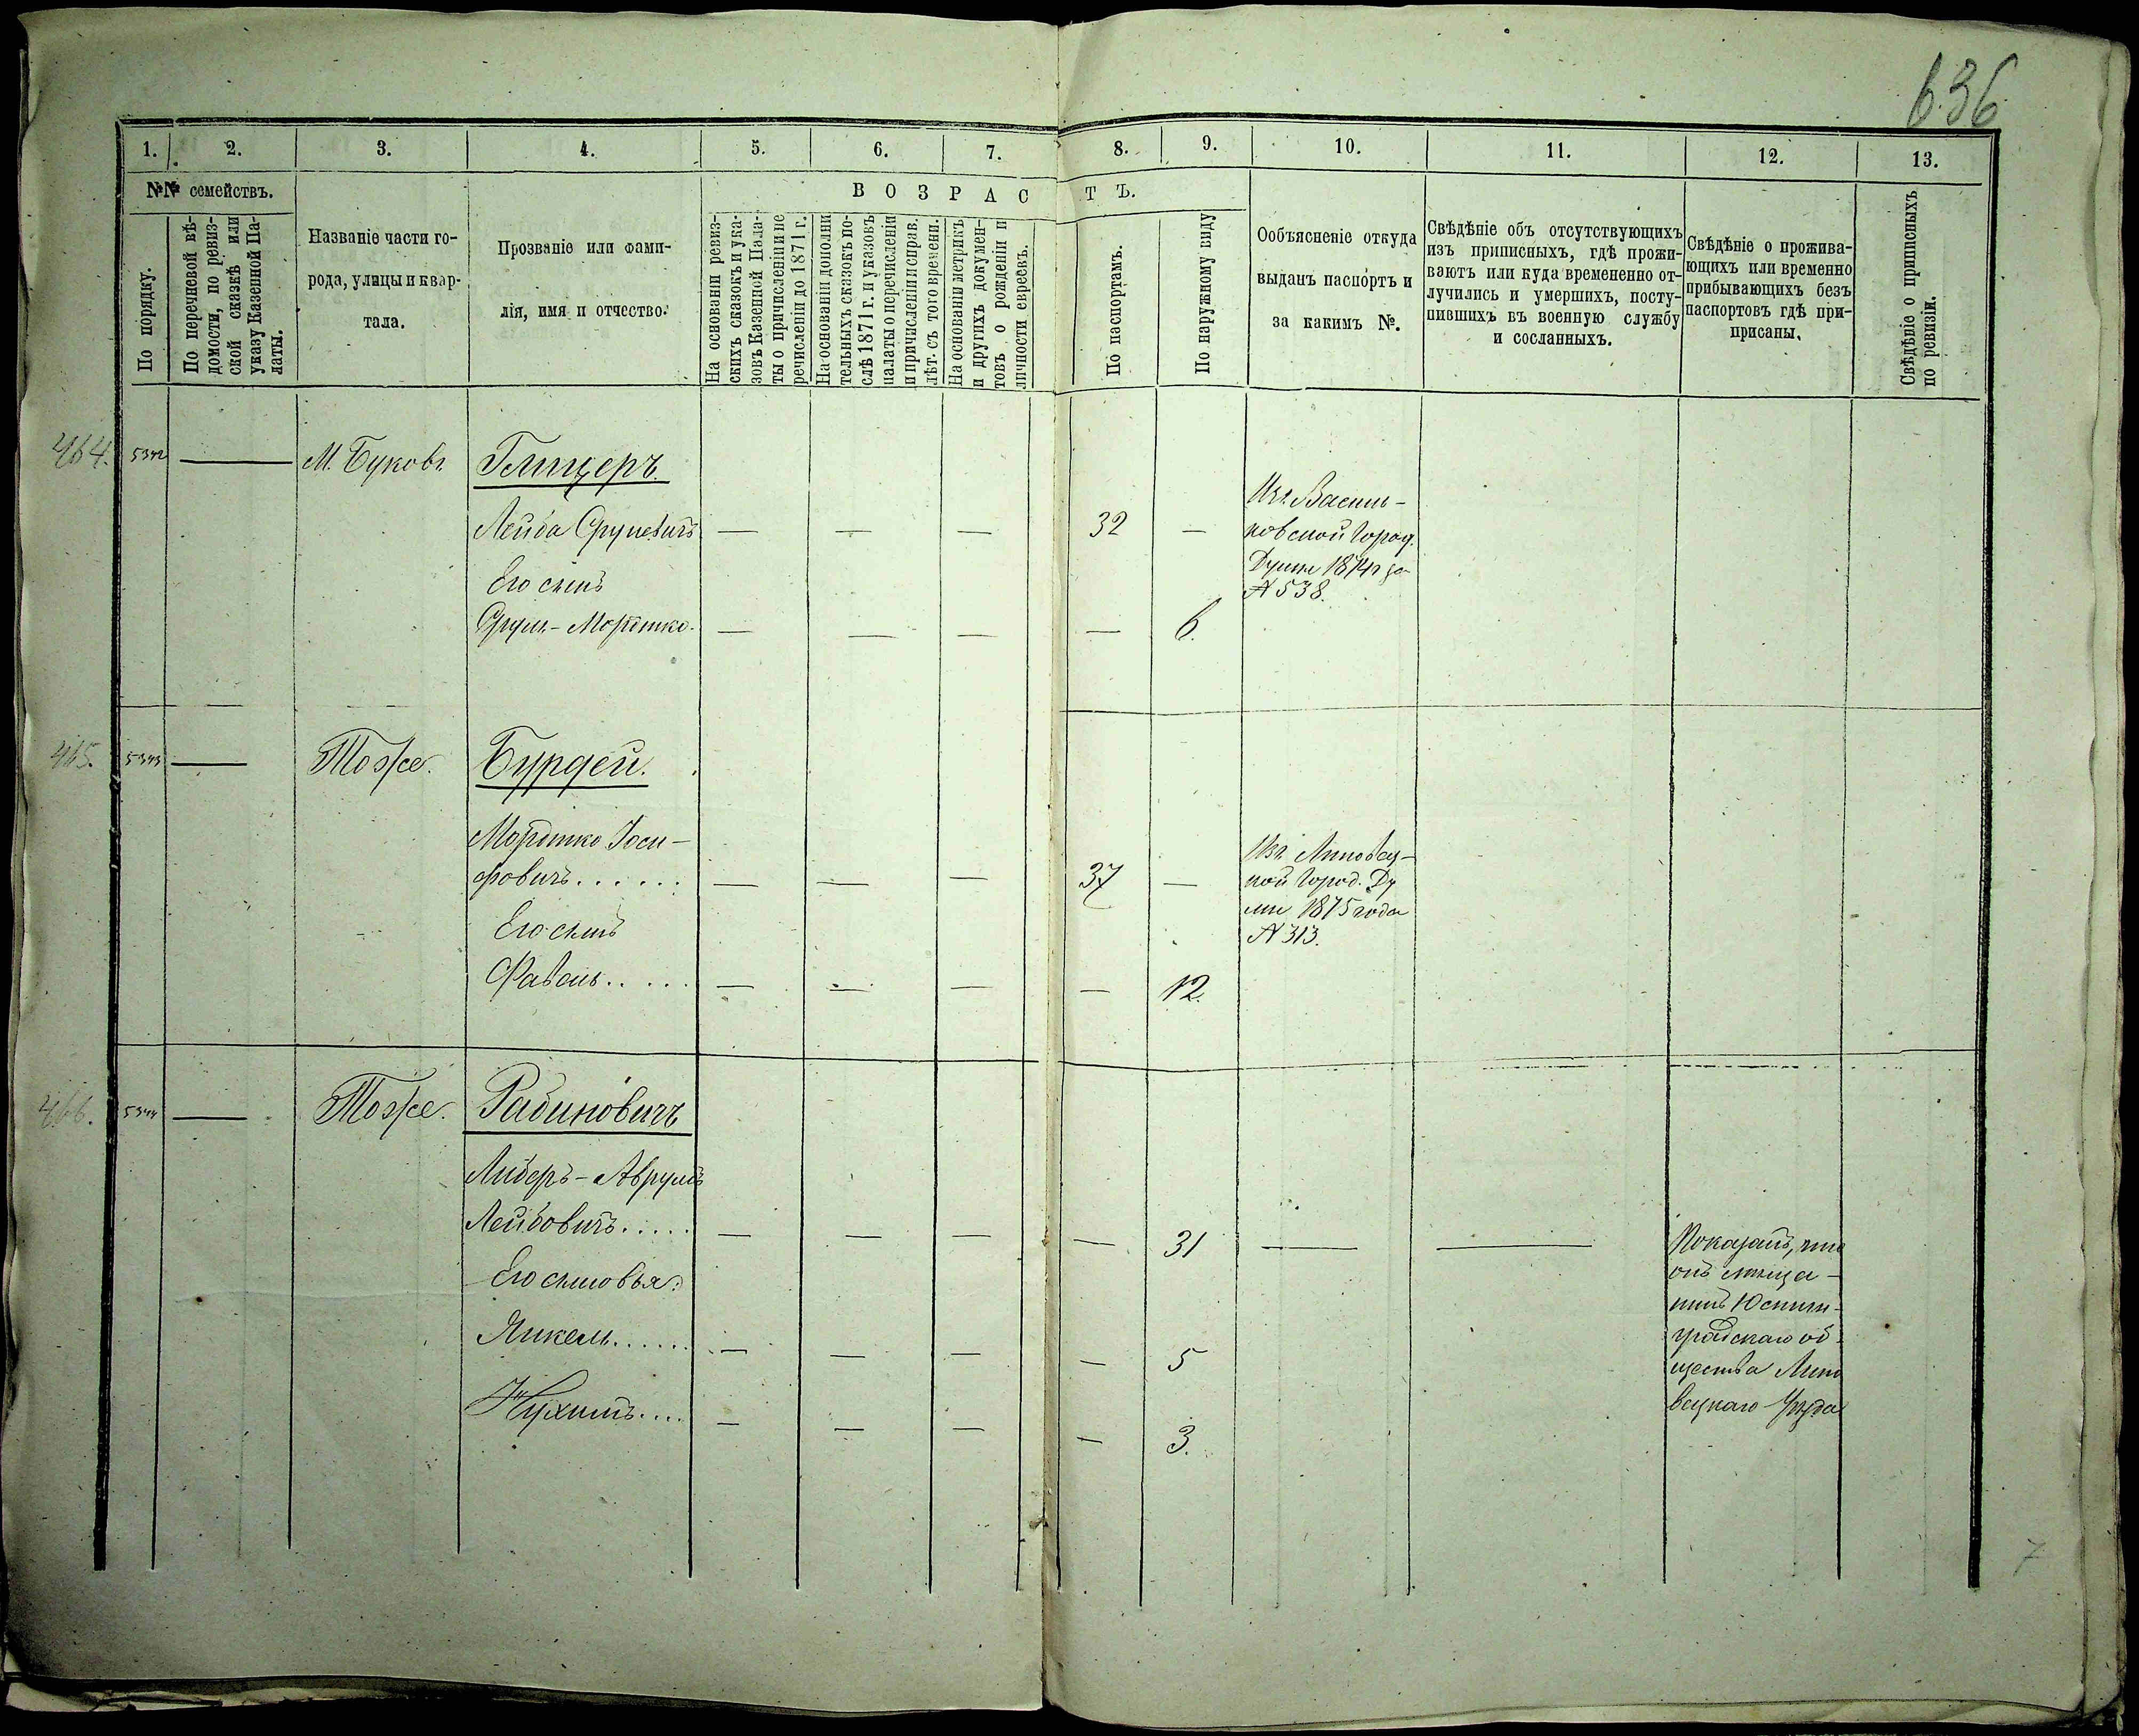 636
1. 2. 3. 4. 5. 6. 7. 8. 9. 10. 11. 12. 13.
№№ семействъ.
По порядку.
По перечневой вѣ-
домости, по ревиз-
ской сказкѣ или
указу Казенной Па-
латы.
Названіе части го-
рода, улицы и квар-
тала.
Прозваніе или фами-
лія, имя и отчество.
ВОЗРАСТЪ.
На основаніи ревиз-
скихъ сказокъ и ука-
зовъ Казенной Пала-
ты о причисленіи и пе
речисленіи до 1871 г.
На основаніи дополни
тельныхъ сказокъ по-
слѣ 1871 г. и указовъ
палаты о перечисленіи
и причисленіи и справ.
лѣт. съ того времени.
На основаніи метрикъ
и другихъ докумен-
товъ о рожденіи и
личности евреевъ.
По паспортамъ.
По наружному виду
Ообъясненіе откуда
выданъ паспортъ и
за какимъ №.
Свѣдѣніе объ отсутствующихъ
изъ приписныхъ, гдѣ прожи-
ваютъ или куда временено от-
лучились и умершихъ, посту-
пившихъ въ военную службу
и сосланныхъ.
Свѣдѣніе о прожива-
ющихъ или временно
прибывающихъ безъ
паспортовъ гдѣ при-
приса­ны.
Свѣдѣніе о приписныхъ
по ревизіи.
464. 5342 — М. Буковъ Глицеръ.
Лейба Срулевичъ — — — 32 —
Изъ Василь-
ковской Город.
Думы 1874 г за
№ 538.
Его сынъ
Срул-Мортко. — — — — 6.
465. 5343 — Тоже. Бурдей.
Мортко Іоси-
фовичъ...... — — — 37 —
Изъ Липовец-
кой Город. Ду
мы 1875 года
№ 313.
Его сынъ
..... — — — — 12.
466. 5344 — Тоже. Рабиновичъ
Либеръ-Аврумъ
Лейбовичъ..... — — — — 31 — —
Показалъ, что
онъ мѣща-
нинъ Юстин-
градскаго об-
щества Липо
вецкаго Уѣзда
Его сыновья:
Янкель...... — — — — 5
Нухимъ.... — — — — 3.
7